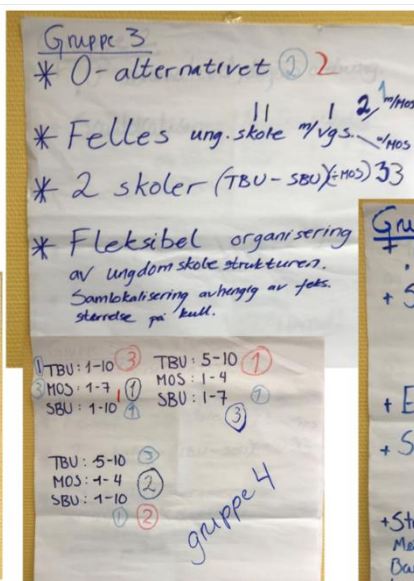 Gruppe 3
* 0-alternativet 2 2
2 1 m/MOS
* Felles ung.skole m/vgs. MOS
* 2 skoler (TBU-SBU)(÷MOS) 33
* Fleksibel organisering
av ungdomskole strukturen.
Samlokalisering avhengig av feks.
størrelse på kull.
1 TBU: 1-10 3
3 MOS: 1-7 1 1
SBU: 1-10 1
TBU: 5-10 1
MOS: 1-4
SBU: 1-7 1
3
TBU: 5-10 3
MOS: 1-4 2
SBU: 1-10
1 2
gruppe 4
Gru
+
+ S
+ E
+ S
+ St
Me
Ba